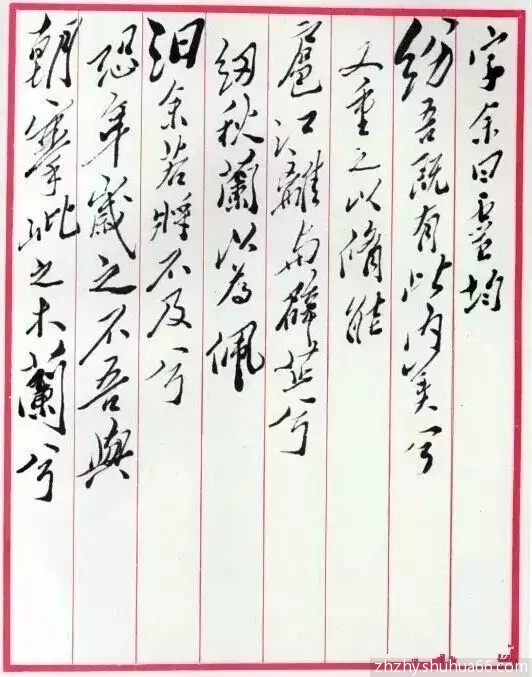 字余曰靈均
紛吾既有此內美兮
又重之以脩能
扈江離與辟芷兮
紉秋蘭以為佩
汩余若將不及兮
恐年歲之不吾與
朝搴阰之木蘭兮
zhzhyshuhua66.com